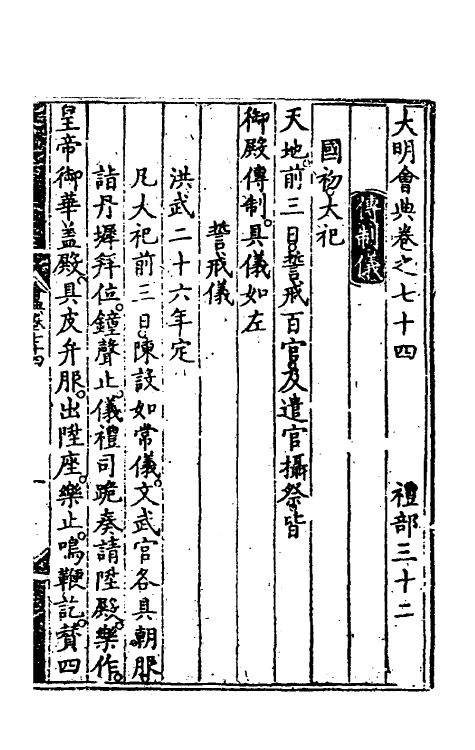 大明會典卷之七十四 禮部三十二
傳制儀
國初大祀
天地前三日誓戒百官及遣官攝祭皆
御殿傳制具儀如左
誓戒儀
洪武二十六年定
凡大祀前三日陳設如常儀文武官各具朝服
詣丹墀拜位鐘聲止儀禮司跪奏請陞殿樂作
皇帝御華蓋殿具皮弁服出陞座樂止鳴鞭訖贊四